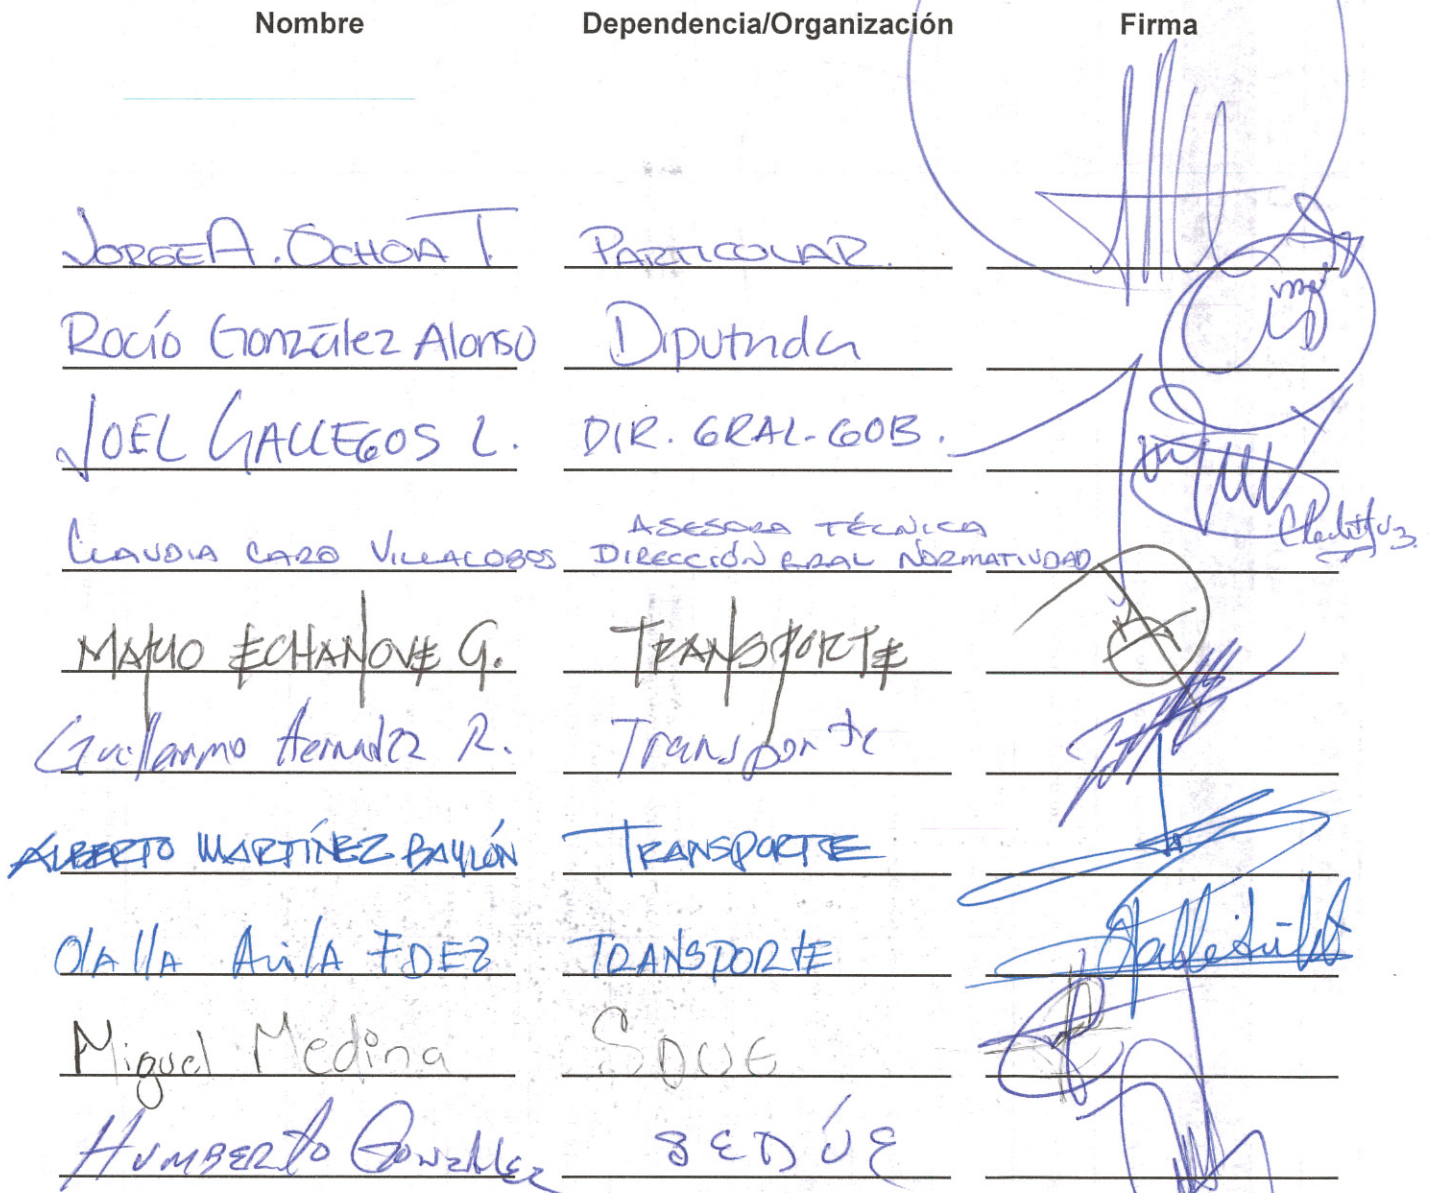 Nombre Dependencia/Organización Firma
JORGE A. OCHOA T. PARTICULAR.
Rocío González Alonso Diputada
JOEL GALLEGOS L. DIR. GRAL. GOB.
ASESORA TÉCNICA
CLAUDIA CARO VILLALOBOS DIRECCIÓN GRAL NORMATIVIDAD
MARIO ECHANOVE G. TRANSPORTE
Guillermo Hernández R. Transporte
ALBERTO MARTÍNEZ BAYLÓN TRANSPORTE
OLALLA AVILA FDEZ TRANSPORTE
Miguel Medina SDUE
HUMBERTO GONZÁLEZ SEDÚE